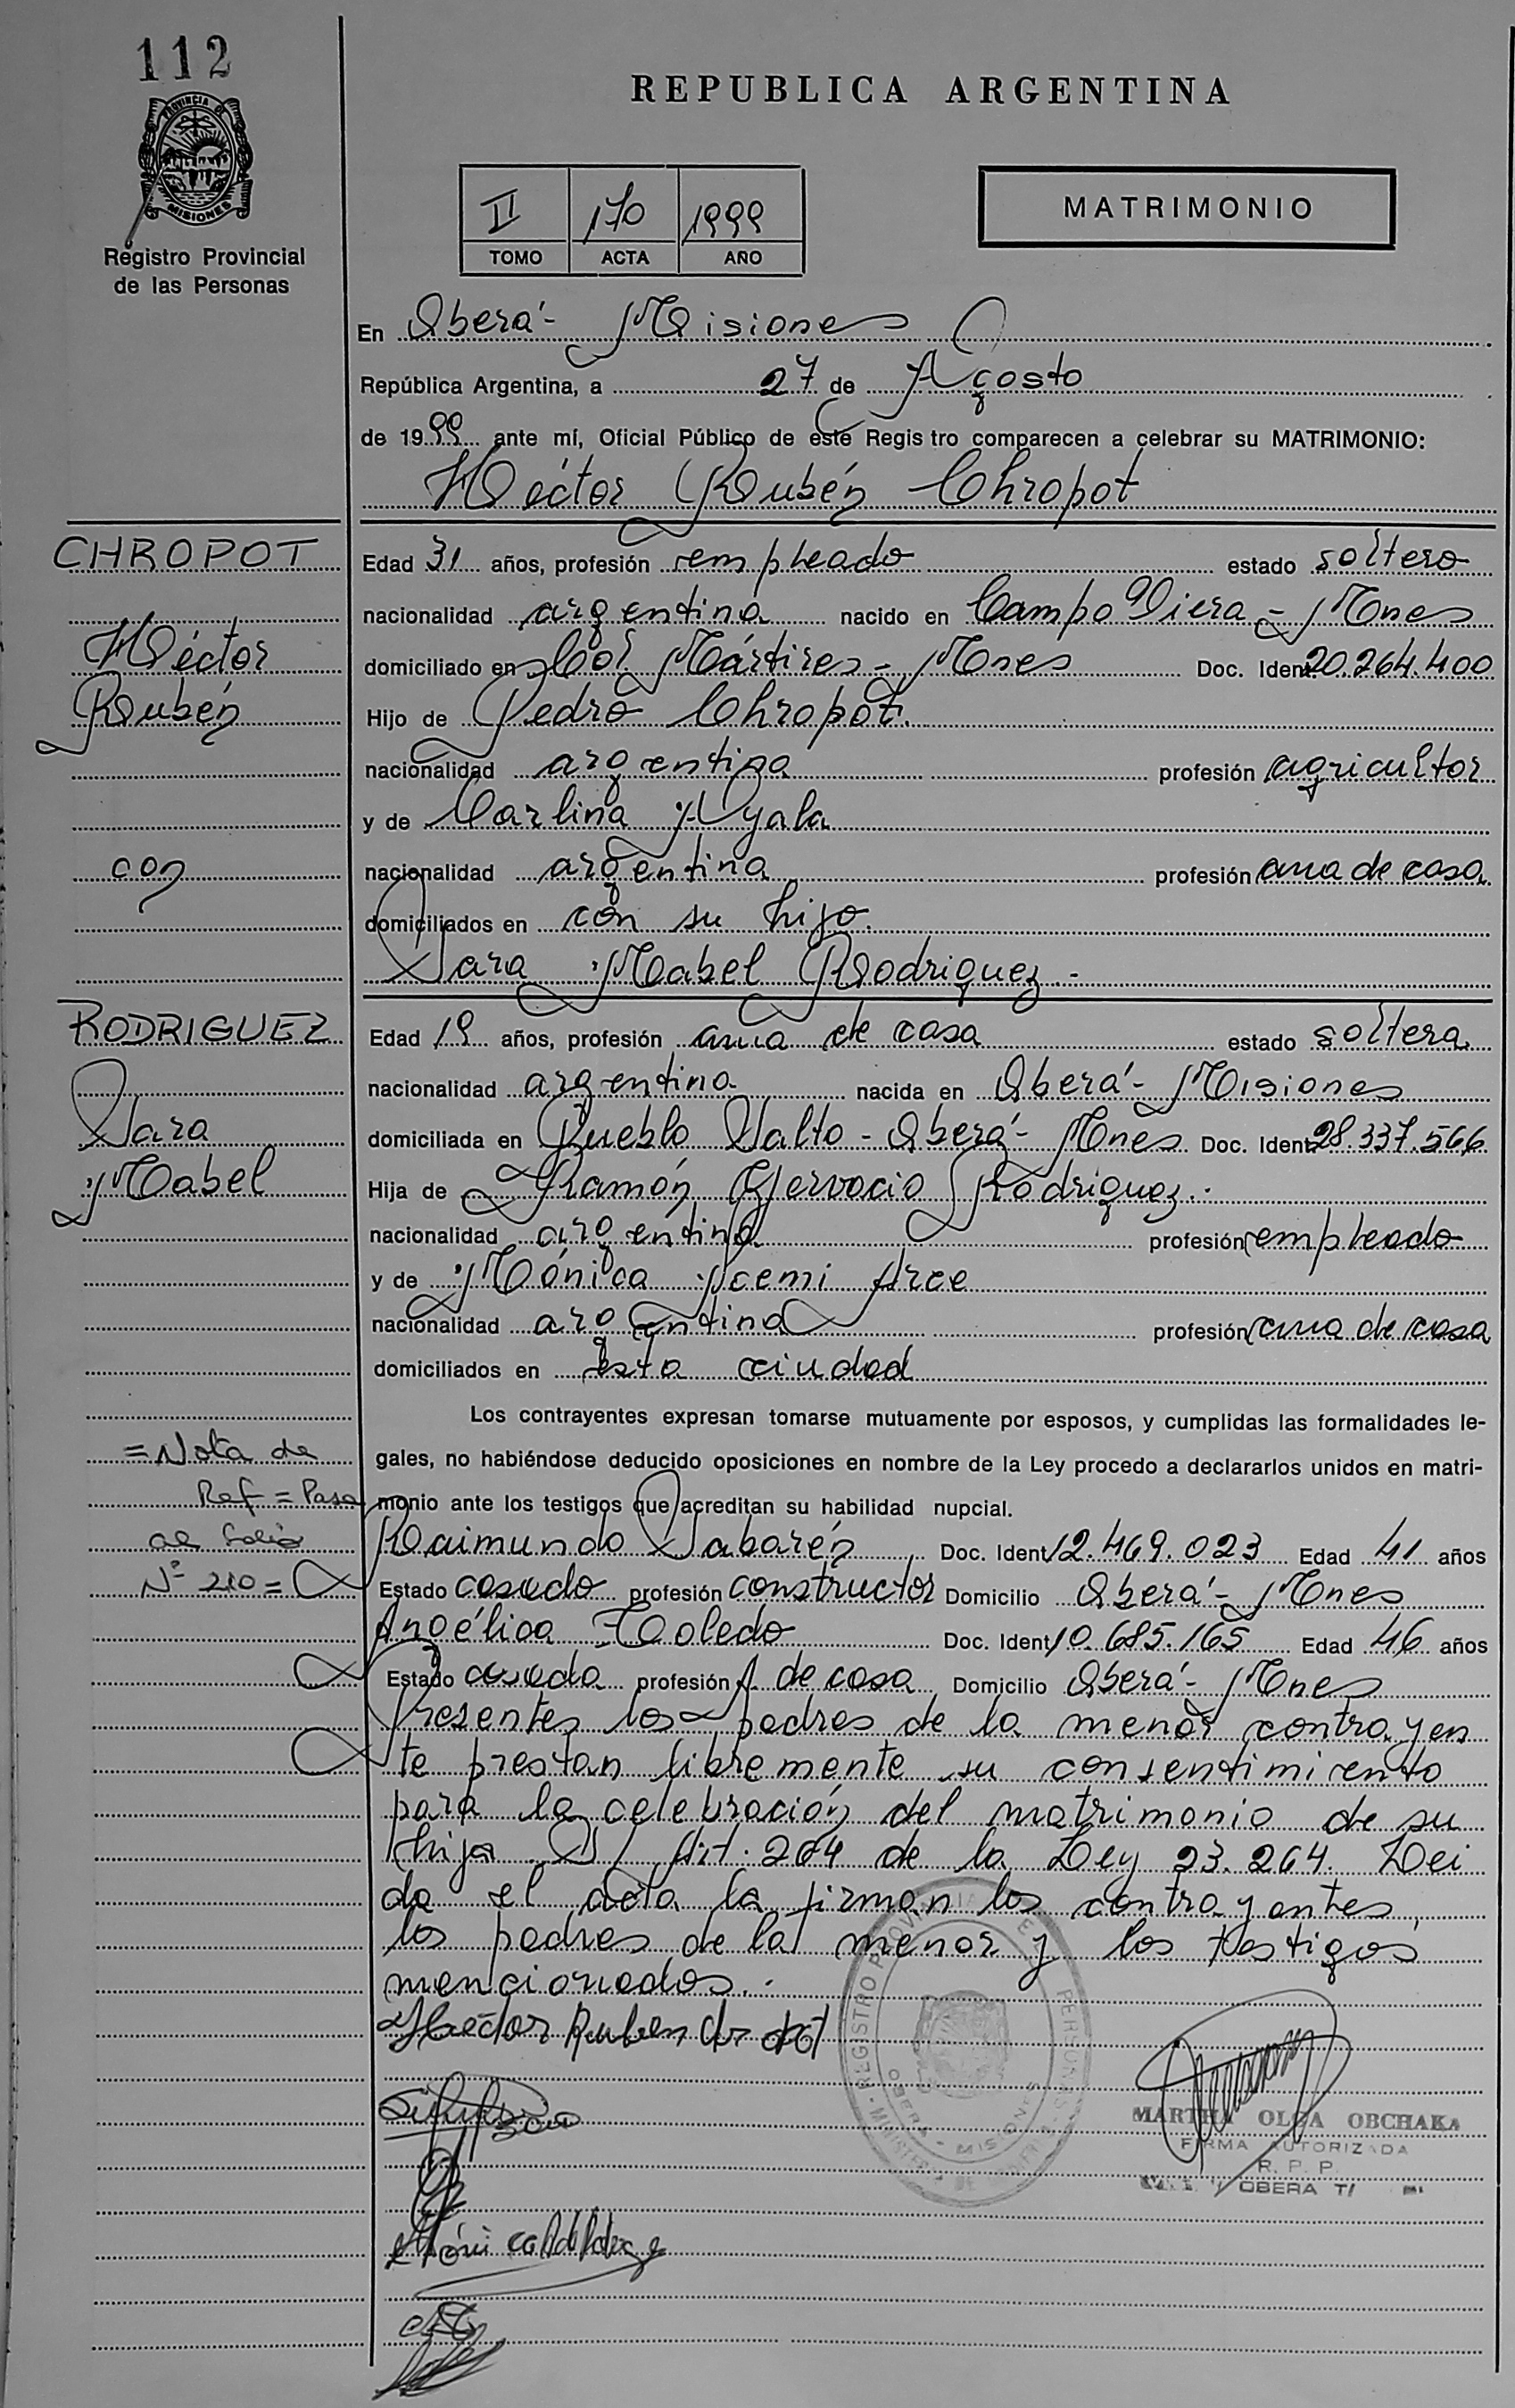 112
PROVINCIA DE
MISIONES
Registro Provincial
de las Personas
REPUBLICA ARGENTINA
II 170 1999
TOMO ACTA AÑO
MATRIMONIO
En Oberá - Misiones
República Argentina, a 27 de Agosto
de 1999 ante mí, Oficial Público de este Registro comparecen a celebrar su MATRIMONIO:
Héctor Rubén Chropot
CHROPOT
Héctor
Rubén
con
Edad 31 años, profesión empleado estado soltero
nacionalidad argentina nacido en Campo Viera - Mnes
domiciliado en Col. Mártires - Mnes Doc. Ident. 20.264.400
Hijo de Pedro Chropot.
nacionalidad argentina profesión agricultor
y de Carlina Ayala
nacionalidad argentina profesión ama de casa
domiciliados en con su hijo.
Sara Mabel Rodriguez.-
RODRIGUEZ
Sara
Mabel
Edad 19 años, profesión ama de casa estado soltera
nacionalidad argentina nacida en Oberá - Misiones
domiciliada en Pueblo Salto - Oberá - Mnes Doc. Ident. 28.337.566
Hija de Ramón Gervacio Rodriguez.
nacionalidad argentina profesión empleado
y de Mónica Noemi Arce
nacionalidad argentina profesión ama de casa
domiciliados en esta ciudad
Los contrayentes expresan tomarse mutuamente por esposos, y cumplidas las formalidades le-
gales, no habiéndose deducido oposiciones en nombre de la Ley procedo a declararlos unidos en matri-
monio ante los testigos que acreditan su habilidad nupcial.
= Nota de
Ref = Pasa
al folio
Nº 210 =
Raimundo Sabarén Doc. Ident 12.469.023 Edad 41 años
Estado casado profesión constructor Domicilio Oberá - Mnes
Angélica Toledo Doc. Ident 10.685.165 Edad 46 años
Estado casada profesión A. de casa Domicilio Oberá - Mnes
Presentes los padres de la menor contrayen
te prestan libremente su consentimiento
para la celebración del matrimonio de su
hija S/ Art. 264 de la Ley 23.264. Lei
da el acta la firman los contrayentes,
los padres de la menor y los testigos
mencionados.
Héctor Ruben Chropot
REGISTRO PROVINCIAL DE PERSONAS
OBERA - MISIONES
MARTHA OLGA OBCHAKA
FIRMA AUTORIZADA
R. P. P.
OBERA